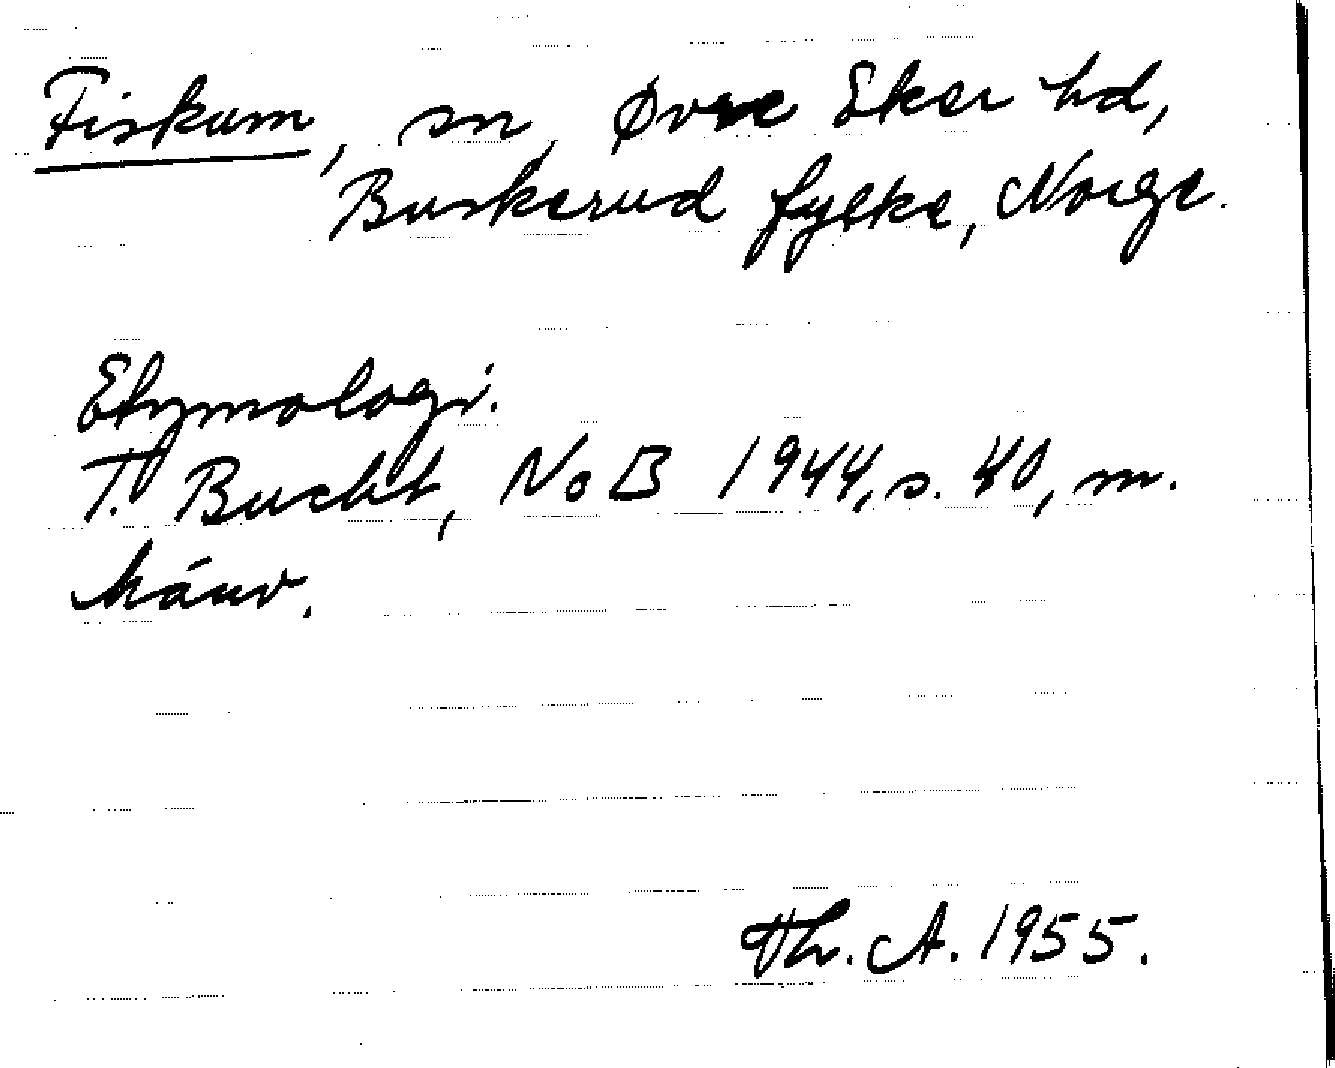 Fiskum, sn, Øvre Eker hd,
Buskerud fylke, Norge.
Etymologi.
T. Bucht, NoB 1944, s. 40, m.
hänv.
Th. A. 1955.